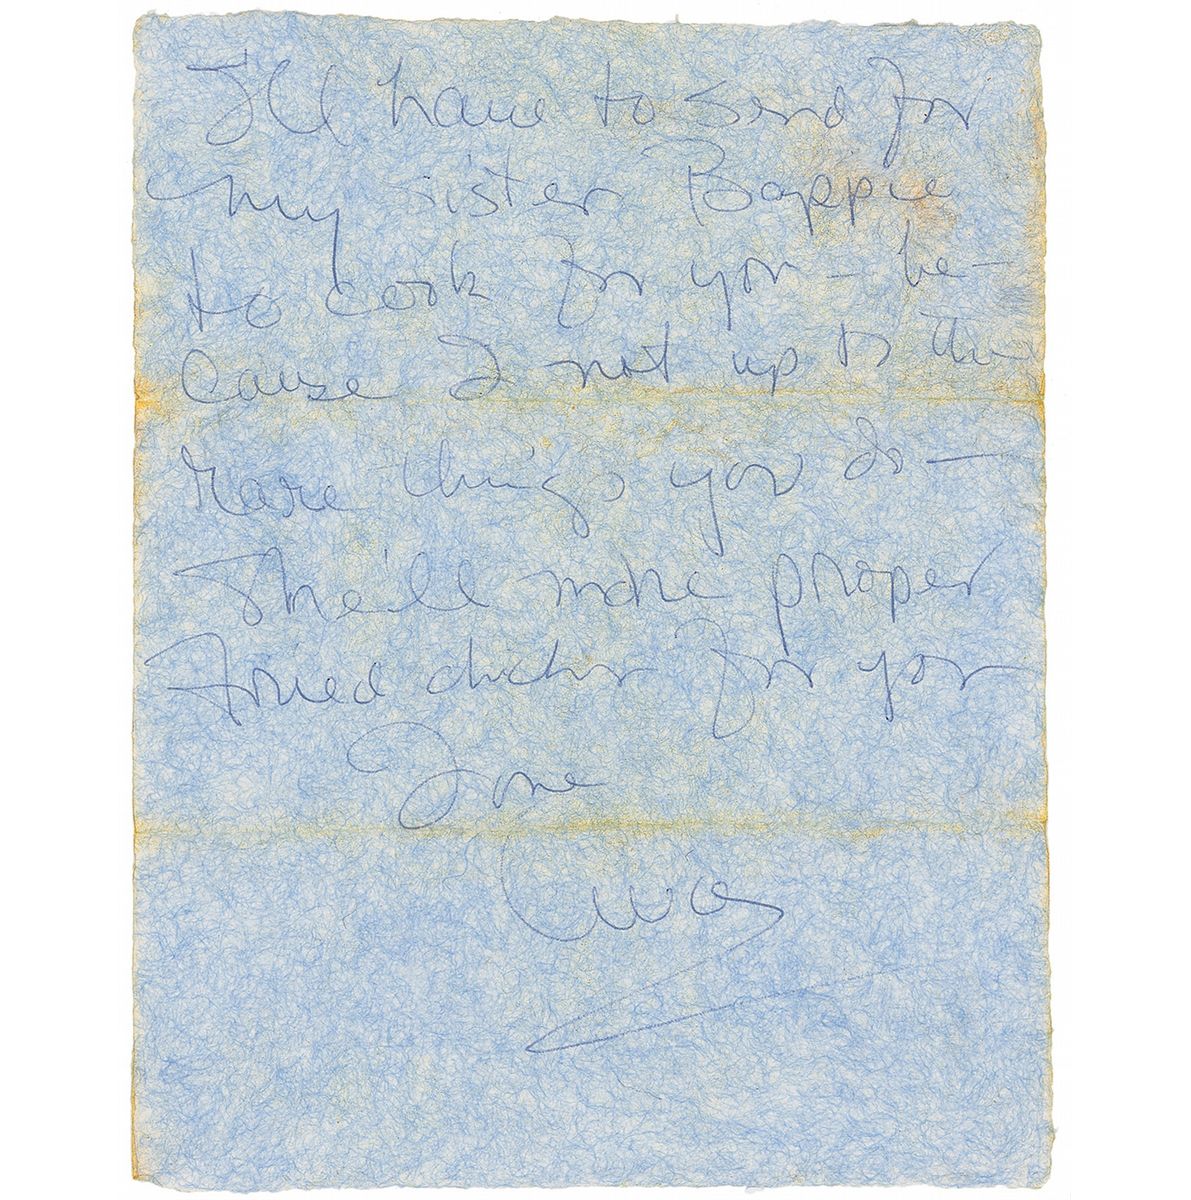 I'll have to send for
my sister Bappie
to cook for you – be-
cause I not up to the
rare things you do –
She'll make proper
Fried chicken for you
Love
Ava